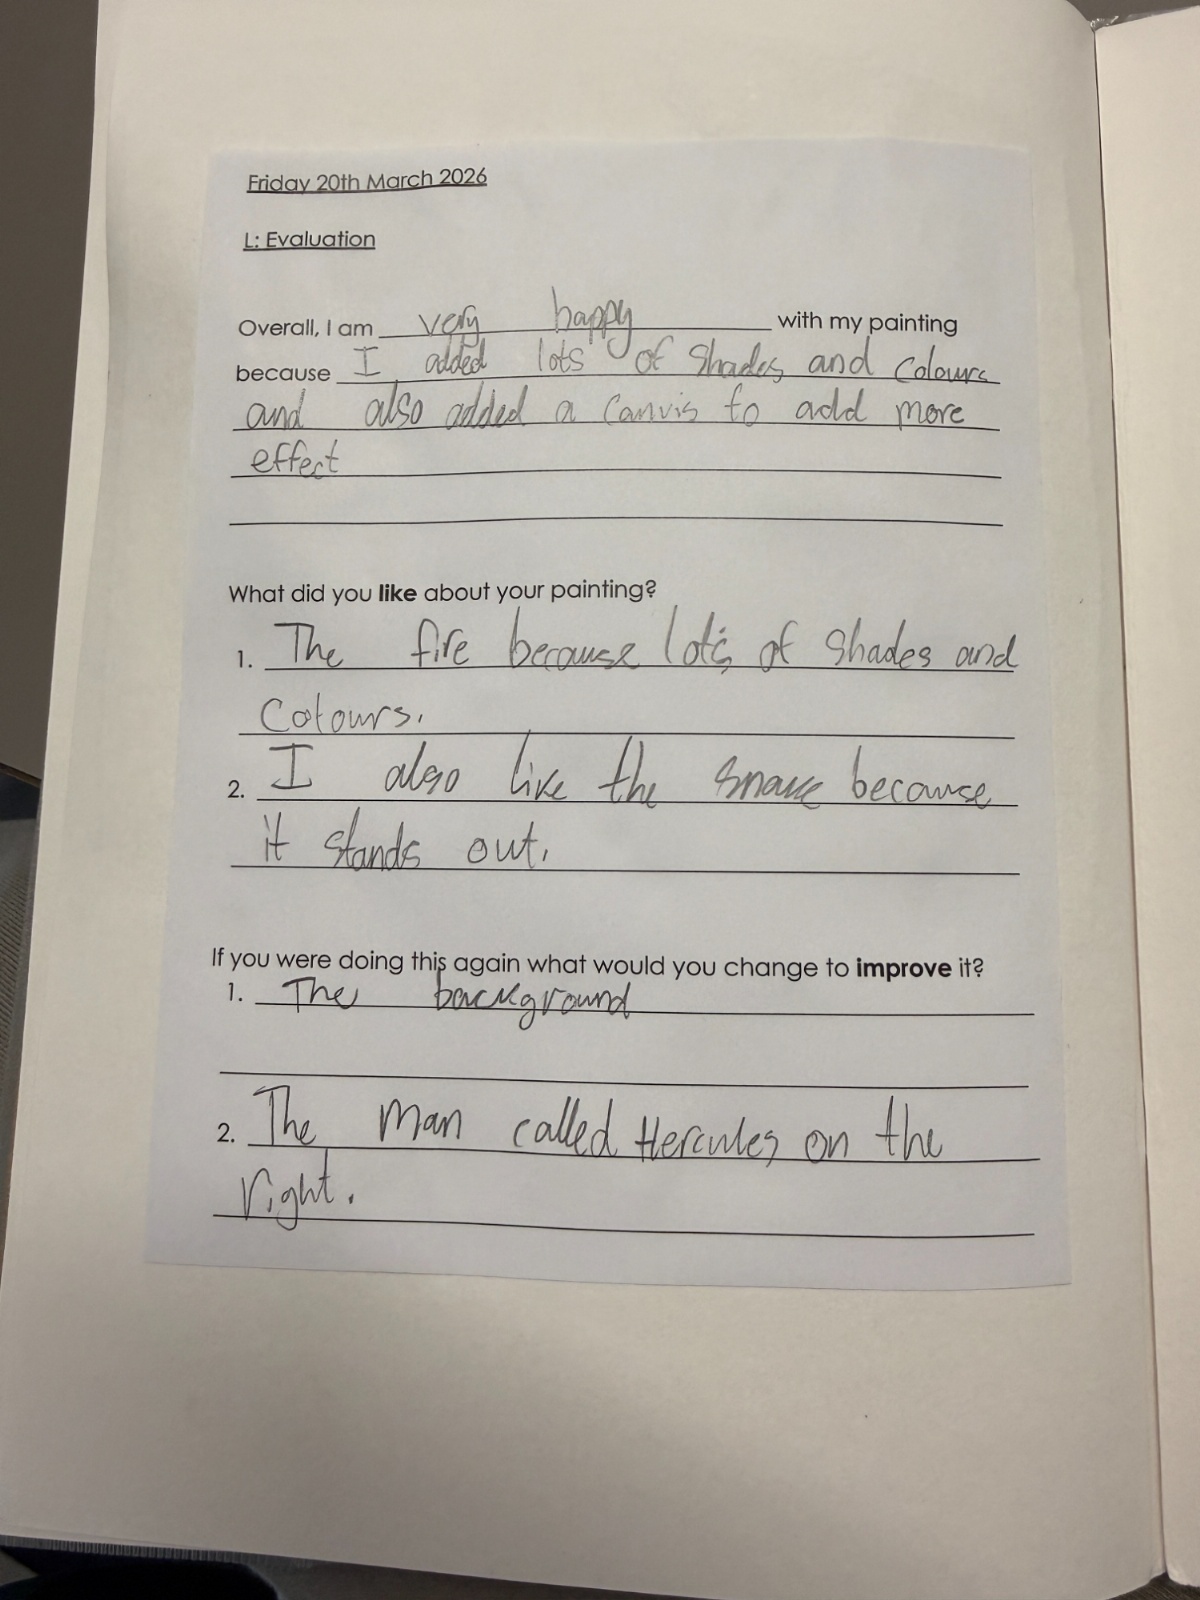 Friday 20th March 2026
L: Evaluation
Overall, I am very happy with my painting
because I added lots of shades and colours
and also added a canvis to add more
effect
What did you like about your painting?
1. The fire because lots of shades and
colours.
2. I also like the snake because
it stands out.
If you were doing this again what would you change to improve it?
1. The background
2. The man called Hercules on the
right.